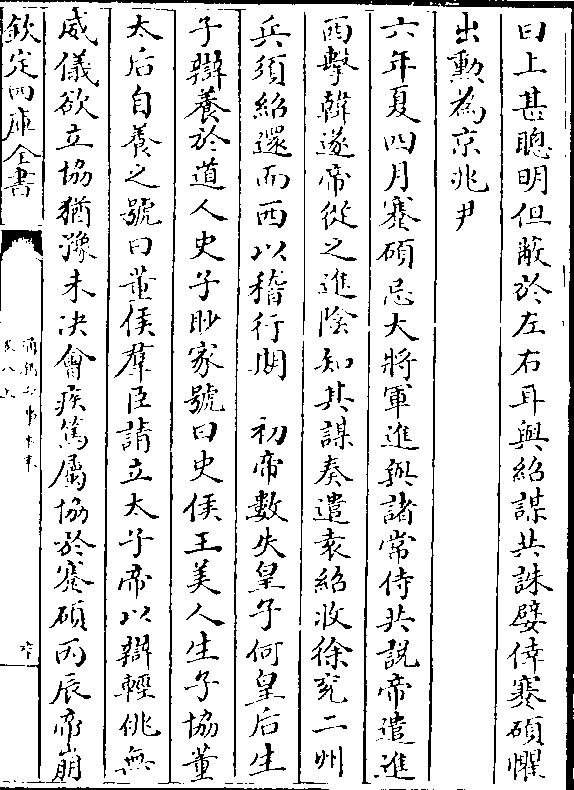 曰上甚聰明但蔽於左右耳與紹謀共誅嬖倖蹇碩懼
出勲為京兆尹
六年夏四月蹇碩忌大將軍進與諸常侍共説帝遣進
西擊韓遂帝從之進隂知其謀奏遣袁紹收徐兖二州
兵須紹還而西以稽行期　初帝數失皇子何皇后生
子辯養於道人史子眇家號曰史侯王美人生子協董
太后自養之號曰董侯羣臣請立太子帝以辯輕佻無
威儀欲立協猶豫未决會疾篤屬協於蹇碩丙辰帝崩
欽定四庫全書